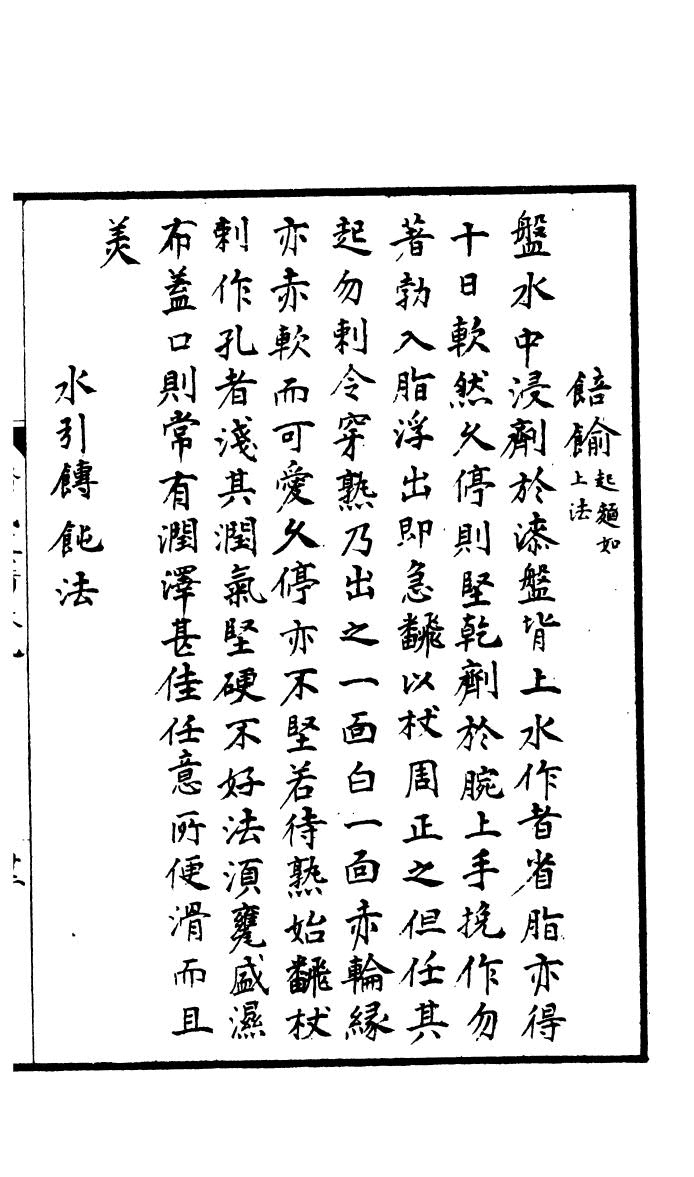 䭚𩜶起麵如上法
盤水中浸劑於漆盤背上水作者省脂亦得
十日軟然久停則堅乾劑於腕上手挽作勿
著勃入脂浮出即急飜以杖周正之但任其
起勿刺令穿熟乃出之一面白一面赤輪緣
亦赤軟而可愛久停亦不堅若待熟始飜杖
刺作孔者淺其潤氣堅硬不好法須甕盛濕
布蓋口則常有潤澤甚佳任意所便滑而且
美
水引餺飥法
廿二